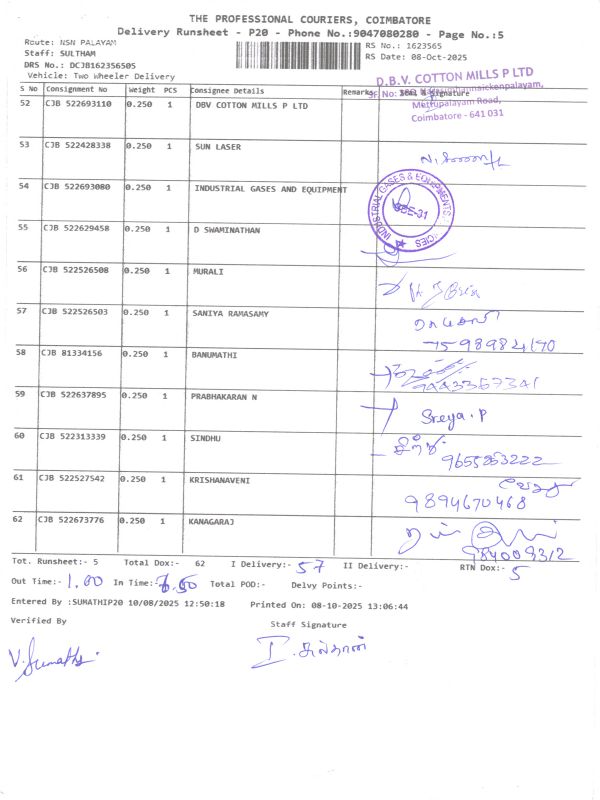 THE PROFESSIONAL COURIERS, COIMBATORE
Delivery Runsheet - P20 - Phone No.:9047080280 - Page No.:5
Route: NSN PALAYAM
RS No.: 1623565
Staff: SULTHAM
RS Date: 08-Oct-2025
DRS No.: DCJB162356505
Vehicle: Two Wheeler Delivery
D.B.V. COTTON MILLS P LTD
S No Consignment No Weight PCS Consignee Details Remarks Signature
SF. No:
Mettupalayam Road,
Coimbatore - 641 031
52 CJB 522693110 0.250 1 DBV COTTON MILLS P LTD
53 CJB 522428338 0.250 1 SUN LASER
54 CJB 522693080 0.250 1 INDUSTRIAL GASES AND EQUIPMENT
INDUSTRIAL GASES &
CBE-31
55 CJB 522629458 0.250 1 D SWAMINATHAN
56 CJB 522526508 0.250 1 MURALI
57 CJB 522526503 0.250 1 SANIYA RAMASAMY
7598984170
58 CJB 81334156 0.250 1 BANUMATHI
9443367341
59 CJB 522637895 0.250 1 PRABHAKARAN N
Sreya.P
60 CJB 522313339 0.250 1 SINDHU
9655263222
61 CJB 522527542 0.250 1 KRISHANAVENI
9894670468
62 CJB 522673776 0.250 1 KANAGARAJ
984009312
Tot. Runsheet:- 5 Total Dox:- 62 I Delivery:- 57 II Delivery:- RTN Dox:- 5
Out Time:- 1.00 In Time:- 6.50 Total POD:- Delvy Points:-
Entered By :SUMATHIP20 10/08/2025 12:50:18 Printed On: 08-10-2025 13:06:44
Verified By Staff Signature
V. Sumathi.
I. சுல்தான்